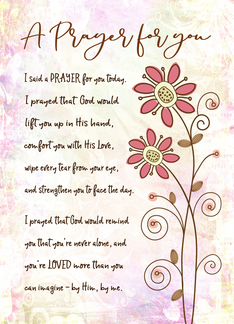 A Prayer for you
I said a PRAYER for you today.
I prayed that God would
lift you up in His hand,
comfort you with His Love,
wipe every tear from your eye,
and strengthen you to face the day.
I prayed that God would remind
you that you're never alone, and
you're LOVED more than you
can imagine - by Him, by me.